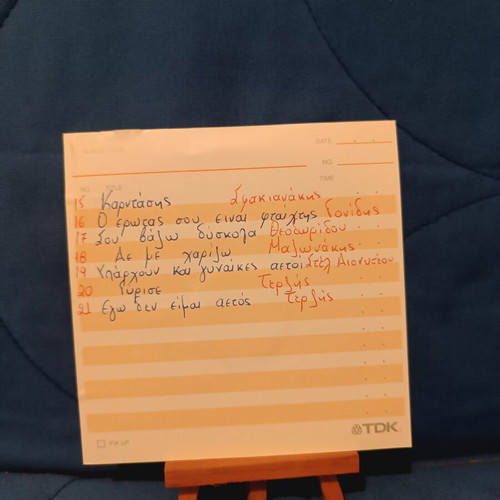 DATE
NO.
NO. TITLE TIME
15 Καρντάσης Σφακιανάκης
16 Ο έρωτας σου ειναι φταίχτης Γονίδης
17 Σου βάζω δύσκολα Θεοδωρίδου
18 Δε με χαρίζω Μαζωνάκης
19 Υπάρχουν και γυναίκες αετοί Στέλ Διονυσίου
20 Γύρισε Τερζής
21 Εγω δεν είμαι αετός Τερζής
PIK UP
TDK